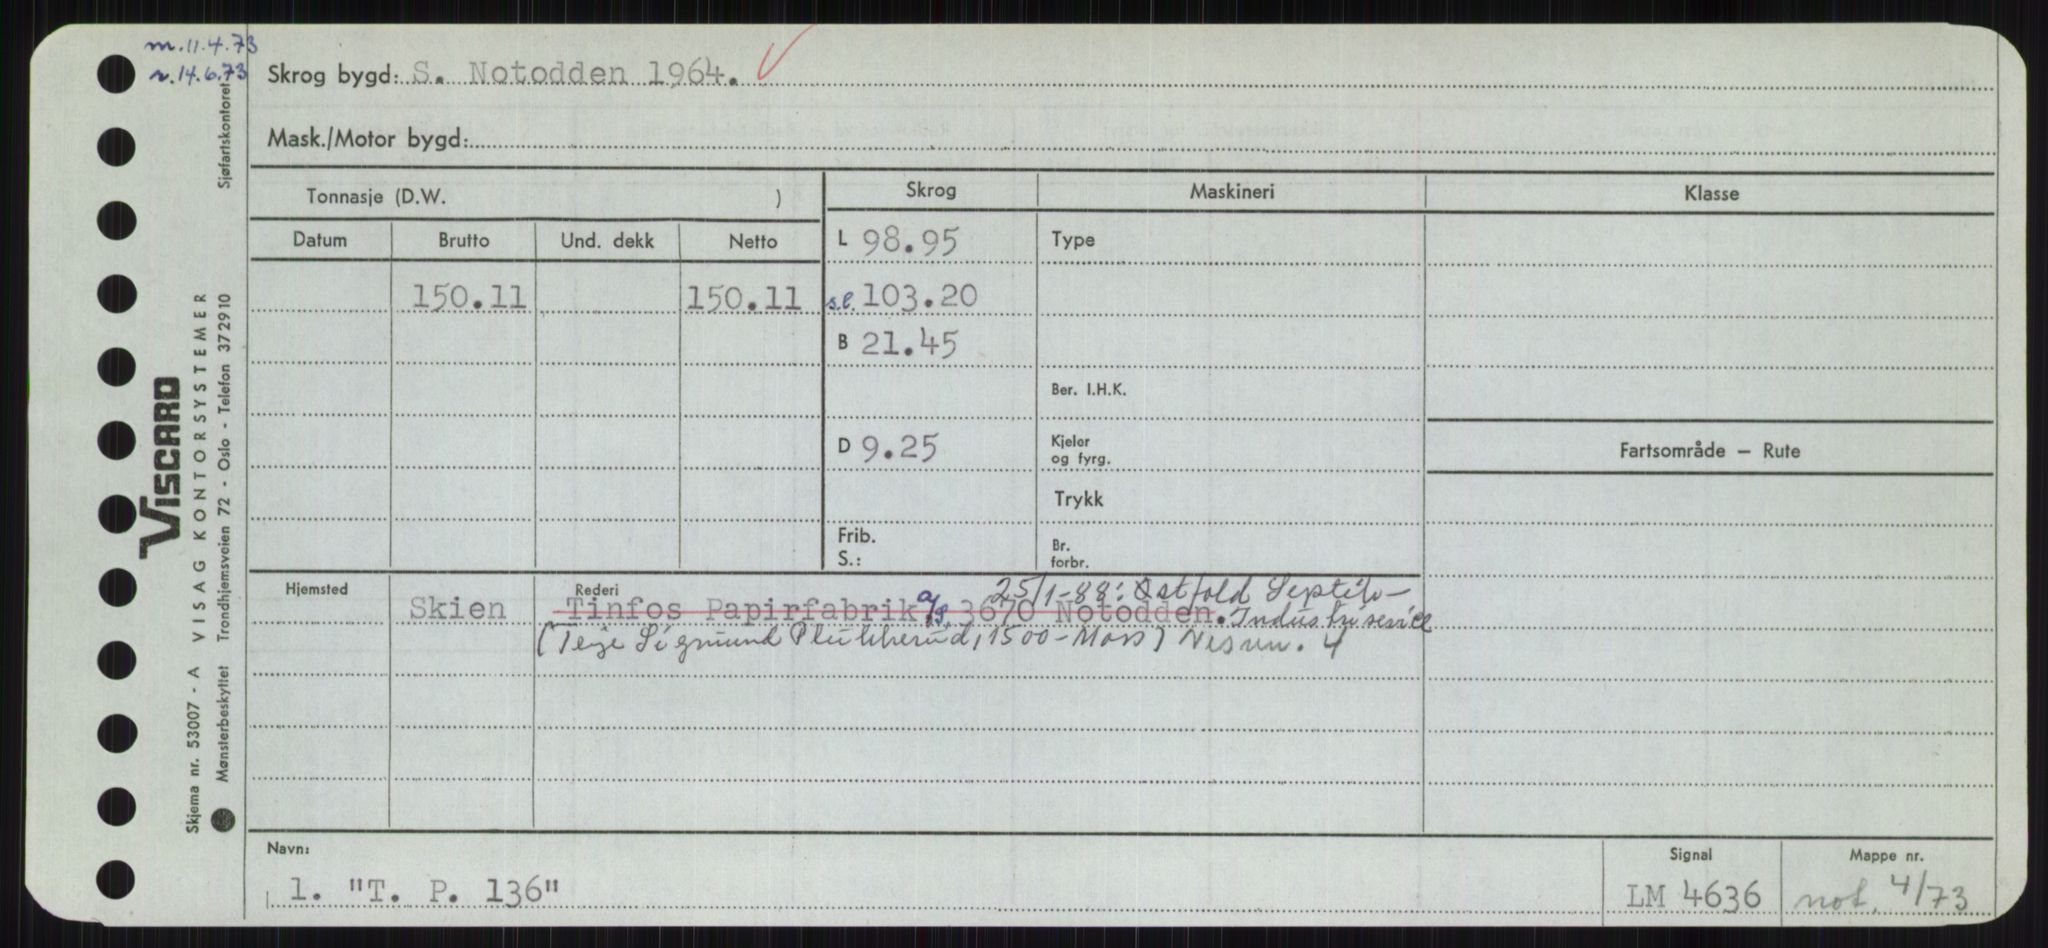 m. 11.4.73
r. 14.6.73
Skrog bygd: S. Notodden 1964.
Mask./Motor bygd:
Tonnasje (D.W. )
Skrog
Maskineri
Klasse
Datum Brutto Und. dekk Netto
L 98.95
Type
150.11 150.11
s.l. 103.20
B 21.45
Ber. I.H.K.
D 9.25
Kjeler
og fyrg.
Fartsområde – Rute
Trykk
Frib.
S.:
Br.
forbr.
Hjemsted
Rederi
25/1-88: Østfold Septik-
Skien Tinfos Papirfabrik a/s, 3670 Notodden. Industriservice
(Terje Sigmund 1500-Moss) 4
Navn:
1. "T. P. 136"
Signal
LM 4636
Mappe nr.
not. 4/73
Sjøfartskontoret
VISCARD
VISAG KONTORSYSTEMER
Trondhjemsveien 72 - Oslo - Telefon 372910
Skjema nr. 53007 - A
Mønsterbeskyttet